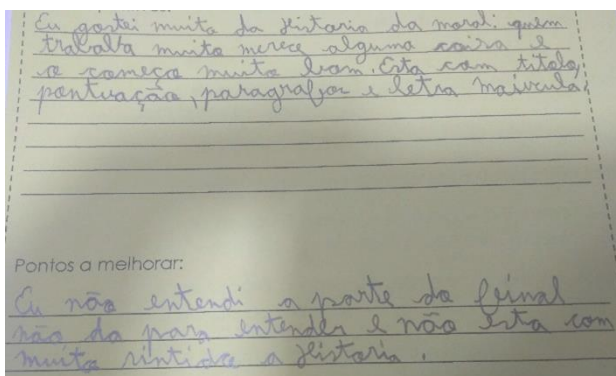 Eu gostei muito da história da moral: quem
trabalha muito merece alguma coisa e
o começo muito bom. Esta com titolo,
pontuação, paragrafos e letra maiúcula.
Pontos a melhorar:
Eu não entendi a parte do feinal
não da para entender e não esta com
muito sintido a história.